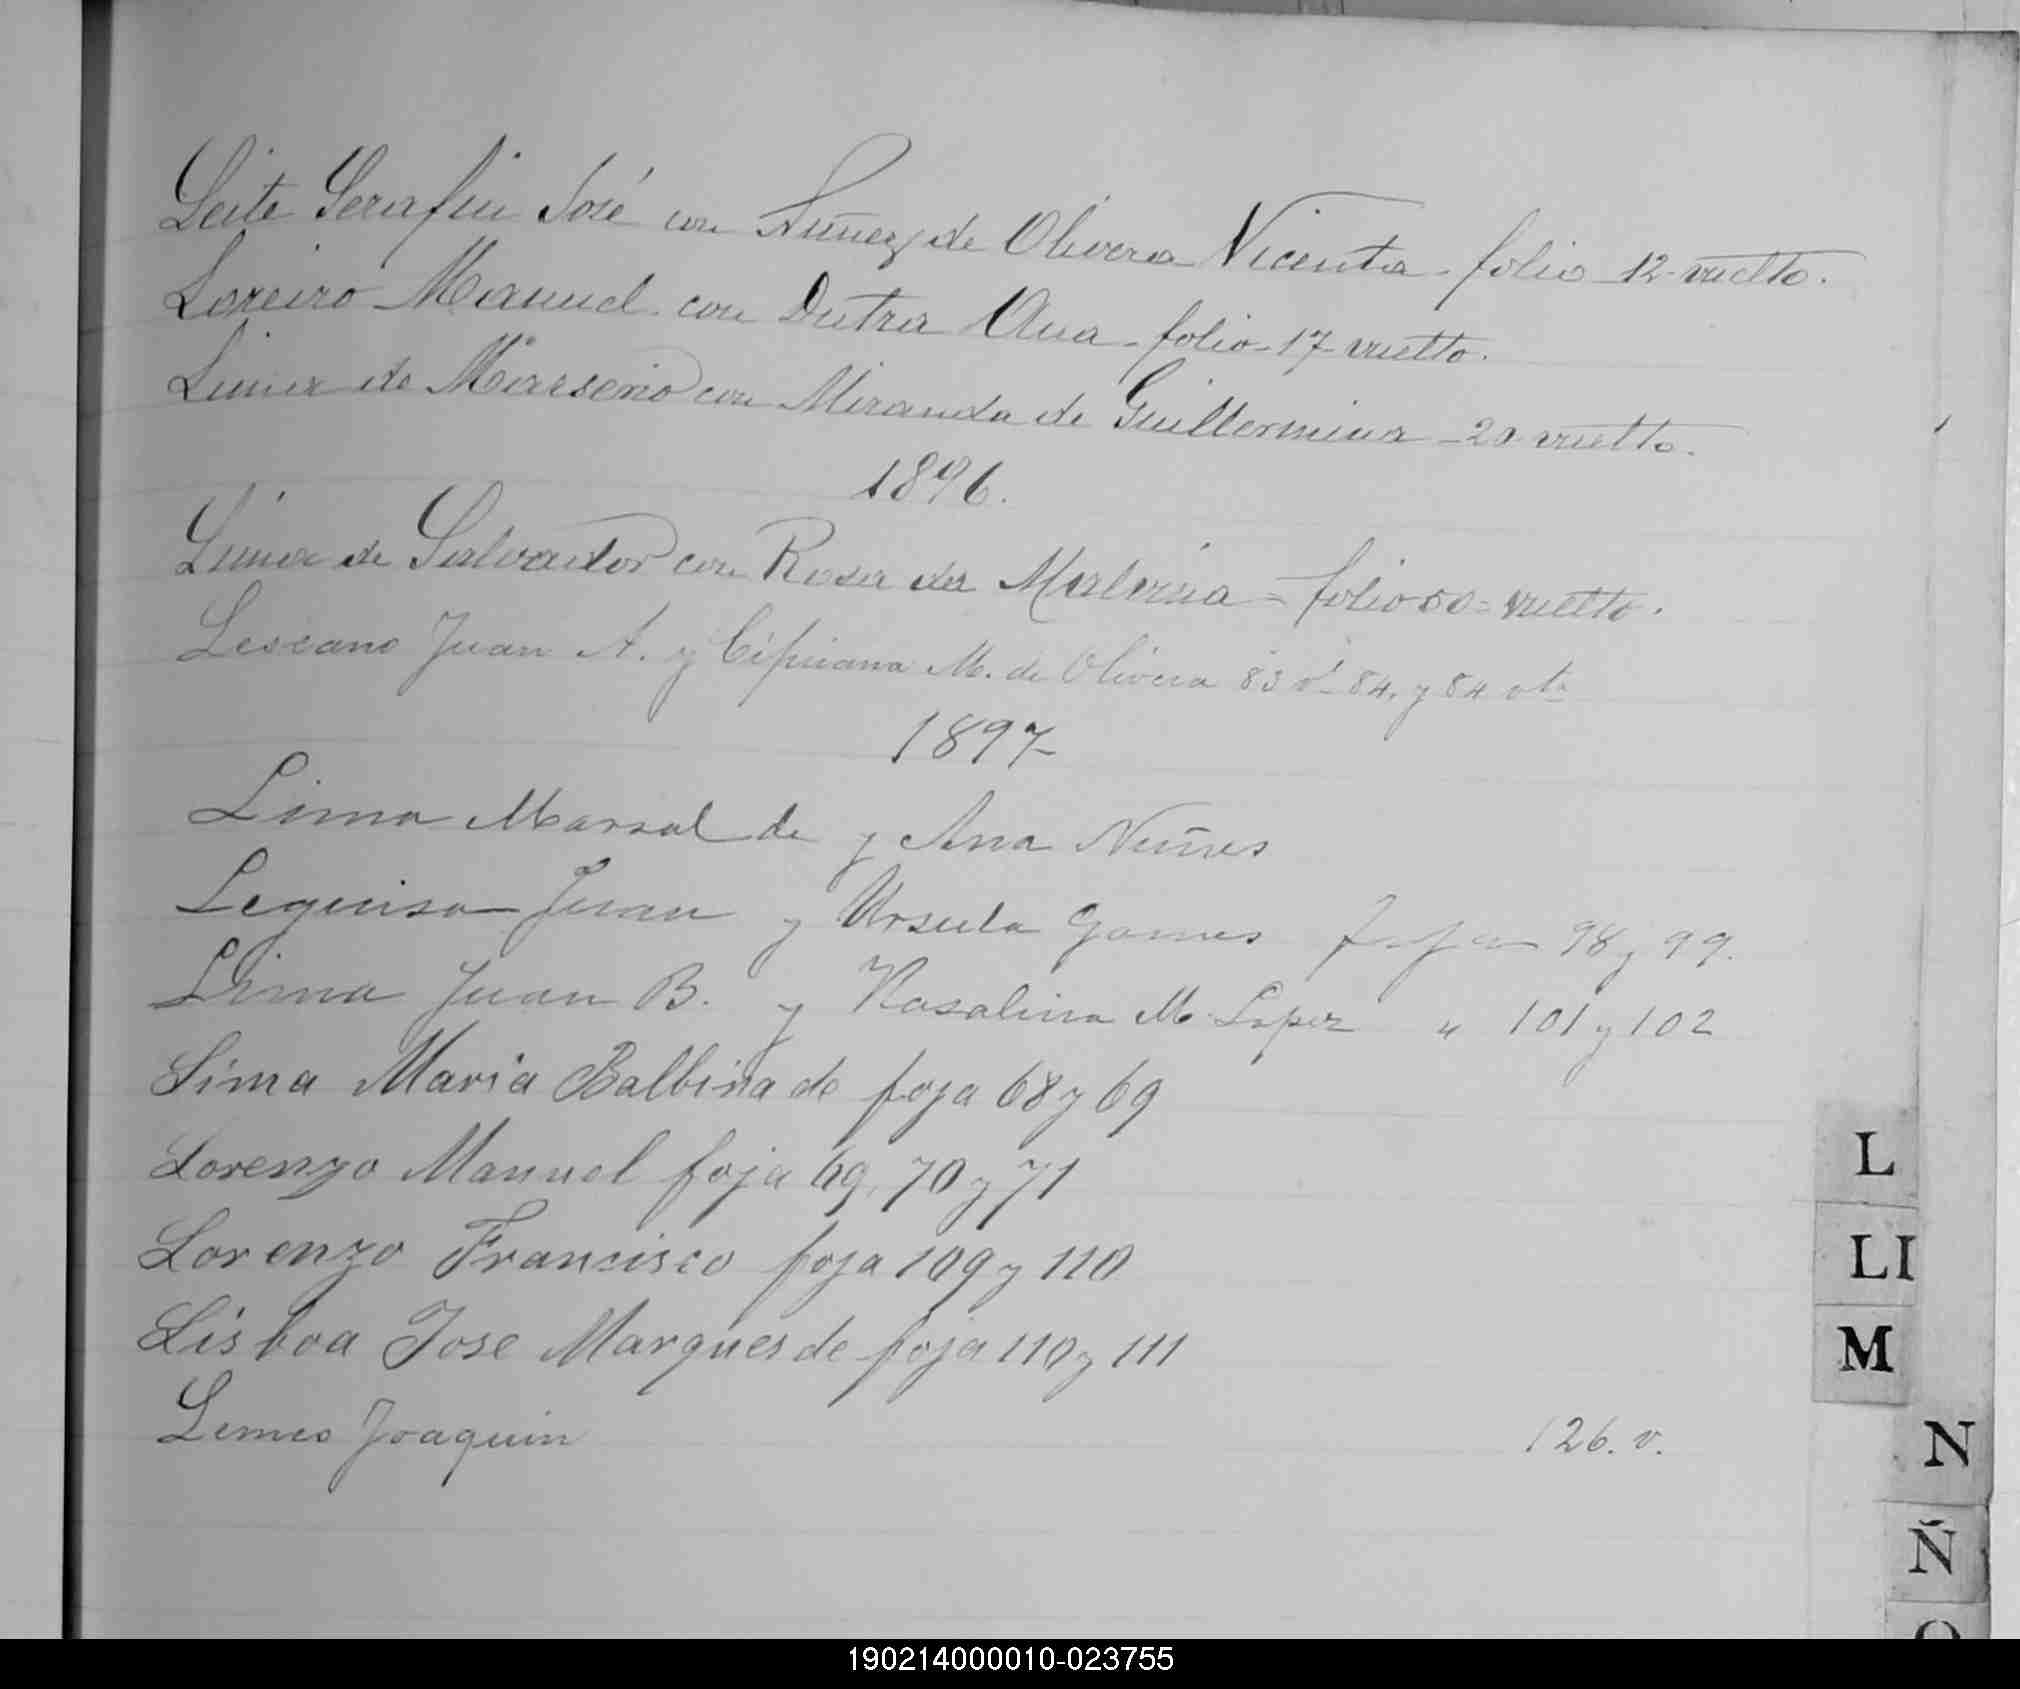 Leite Serafin José con Nuñez de Olivera Vicenta - folio 12 vuelto.
Loreiro Manuel con Dutra Ana - folio - 17 vuelto.
Lima de con Miranda de Guillermina - 20 vuelto.
1896.
Lima de Salvador con Rosa da Malvina = folio 50 = vuelto.
Lescano Juan A. y Cipriana M. de Olivera 83 vt 84. y 84 vta
1897
Lima Marsal de y Ana Nuñes
Leguisa Juan y Ursula Gomes foja 98 y 99.
Lima Juan B. y Rosalina M. Lopez " 101 y 102
Lima Maria Balbina de foja 68 y 69
Lorenzo Manuel foja 69, 70 y 71
Lorenzo Francisco foja 109 y 110
Lisboa Jose Marques de foja 110 y 111
Lemes Joaquin 126. v.
L
LI
M
N
Ñ
O
190214000010-023755